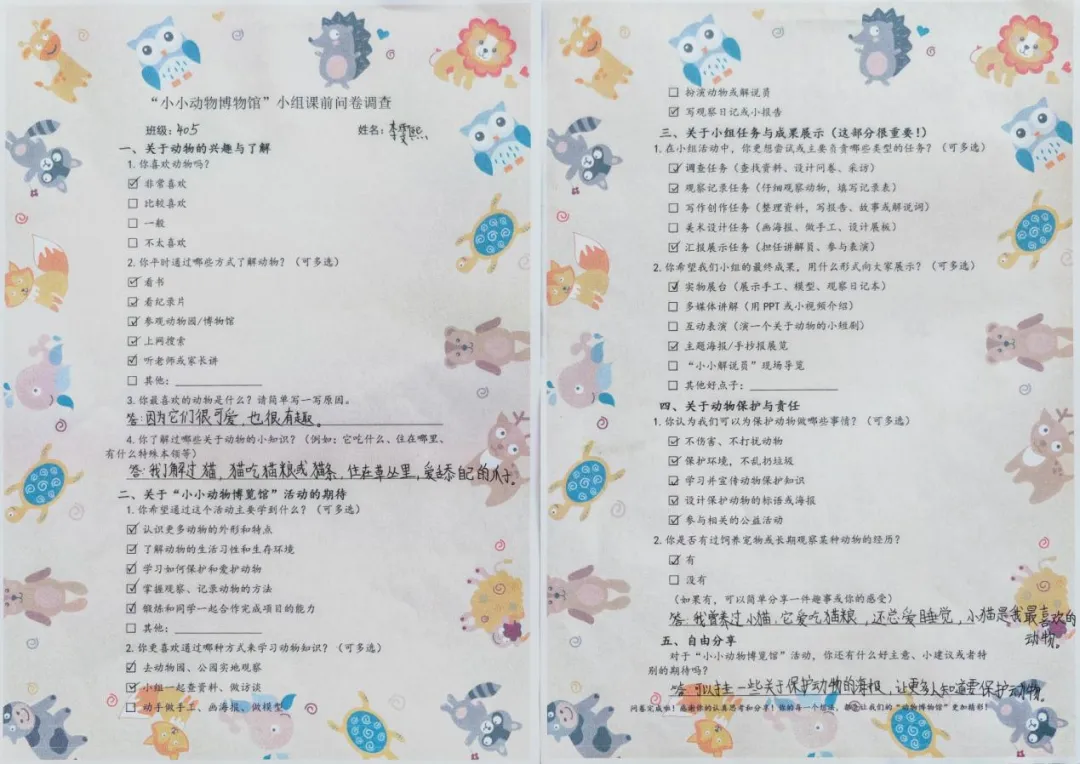 “小小动物博物馆”小组课前问卷调查
班级：405 姓名：李雯熙
一、关于动物的兴趣与了解
1. 你喜欢动物吗？
☑ 非常喜欢
☐ 比较喜欢
☐ 一般
☐ 不太喜欢
2. 你平时通过哪些方式了解动物？（可多选）
☑ 看书
☑ 看纪录片
☑ 参观动物园/博物馆
☑ 上网搜索
☑ 听老师或家长讲
☐ 其他：
3. 你最喜欢的动物是什么？请简单写一写原因。
答：因为它们很可爱，也很有趣。
4. 你了解过哪些关于动物的小知识？（例如：它吃什么、住在哪里、
有什么特殊本领等）
答：我了解过猫，猫吃猫粮或猫条，住在草丛里，爱舔自己的爪子。
二、关于“小小动物博览馆”活动的期待
1. 你希望通过这个活动主要学到什么？（可多选）
☑ 认识更多动物的外形和特点
☑ 了解动物的生活习性和生存环境
☑ 学习如何保护和爱护动物
☑ 掌握观察、记录动物的方法
☑ 锻炼和同学一起合作完成项目的能力
☐ 其他：
2. 你更喜欢通过哪种方式来学习动物知识？（可多选）
☑ 去动物园、公园实地观察
☑ 小组一起查资料、做访谈
☐ 动手做手工、画海报、做模型
☐ 扮演动物或解说员
☑ 写观察日记或小报告
三、关于小组任务与成果展示（这部分很重要！）
1. 在小组活动中，你更想尝试或主要负责哪些类型的任务？（可多选）
☑ 调查任务（查找资料、设计问卷、采访）
☑ 观察记录任务（仔细观察动物，填写记录表）
☐ 写作创作任务（整理资料，写报告、故事或解说词）
☐ 美术设计任务（画海报、做手工、设计展板）
☑ 汇报展示任务（担任讲解员、参与表演）
2. 你希望我们小组的最终成果，用什么形式向大家展示？（可多选）
☑ 实物展台（展示手工、模型、观察日记本）
☐ 多媒体讲解（用 PPT 或小视频介绍）
☐ 互动表演（演一个关于动物的小短剧）
☑ 主题海报/手抄报展览
☐ “小小解说员”现场导览
☐ 其他好点子：
四、关于动物保护与责任
1. 你认为我们可以为保护动物做哪些事情？（可多选）
☑ 不伤害、不打扰动物
☑ 保护环境，不乱扔垃圾
☑ 学习并宣传动物保护知识
☑ 设计保护动物的标语或海报
☑ 参与相关的公益活动
2. 你是否有过饲养宠物或长期观察某种动物的经历？
☑ 有
☐ 没有
（如果有，可以简单分享一件趣事或你的感受）
答：我曾养过小猫，它爱吃猫粮，还总爱睡觉，小猫是我最喜欢的
动物。
五、自由分享
对于“小小动物博览馆”活动，你还有什么好主意、小建议或者特
别的期待吗？
答：可以挂一些关于保护动物的海报，让更多人知道要保护动物。
问卷完成啦！感谢你的认真思考和分享！你的每一个想法，都会让我们的“动物博物馆”更加精彩！